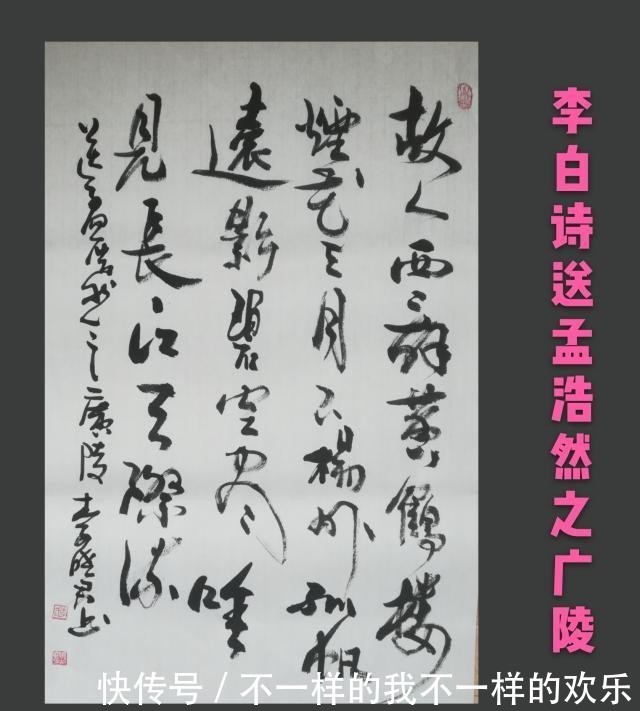 李白诗送孟浩然之广陵
故人西辞黄鶴楼
煙花三月下揚州孤帆
遠影碧空尽唯
見長江天際流
送孟浩然之廣陵
快传号 / 不一样的我不一样的欢乐